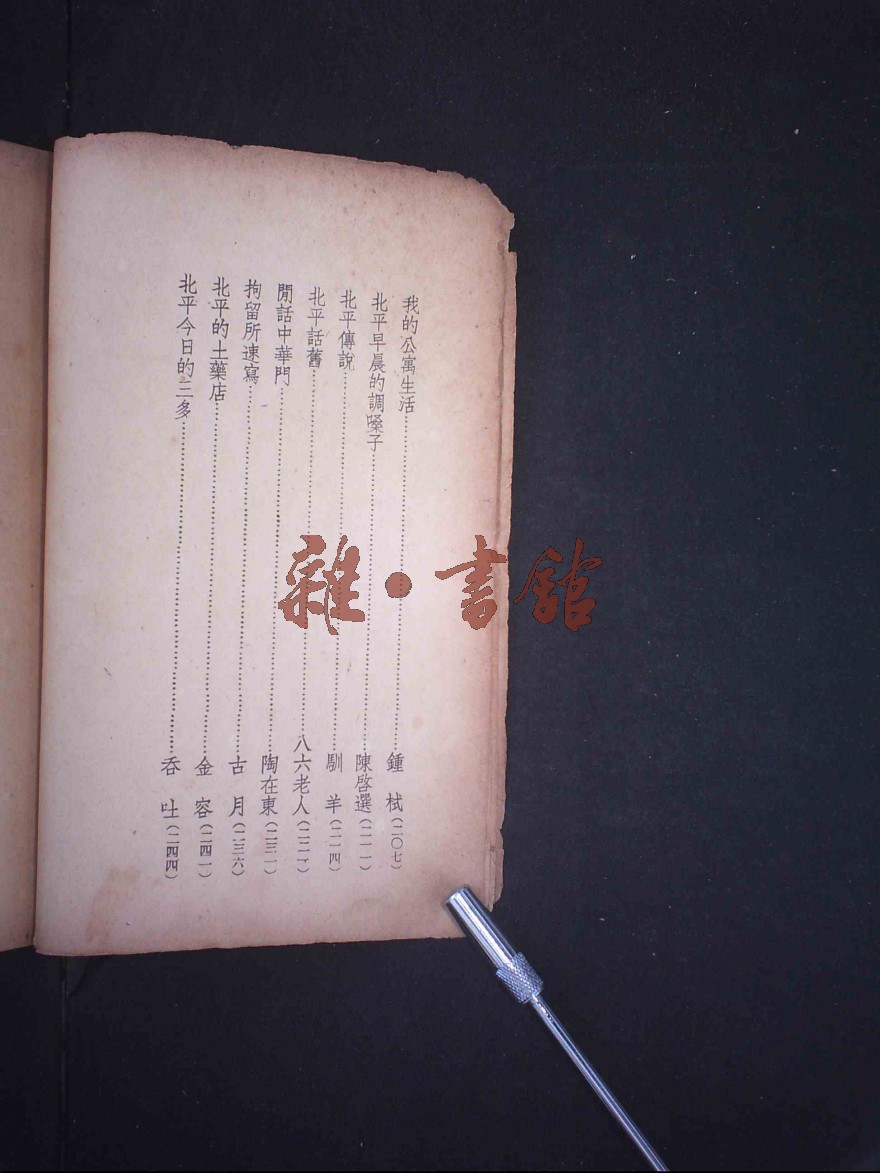 我的公寓生活……鍾　栻(二〇七)
北平早晨的調嗓子……陳啓選(二一一)
北平傳說……馴　羊(二一四)
北平話舊……八六老人
閒話中華門……陶在東(二三一)
拘留所速寫……古　月(二三六)
北平的土藥店……金　容(二四一)
北平今日的三多……吞　吐(二四四)
雜·書館